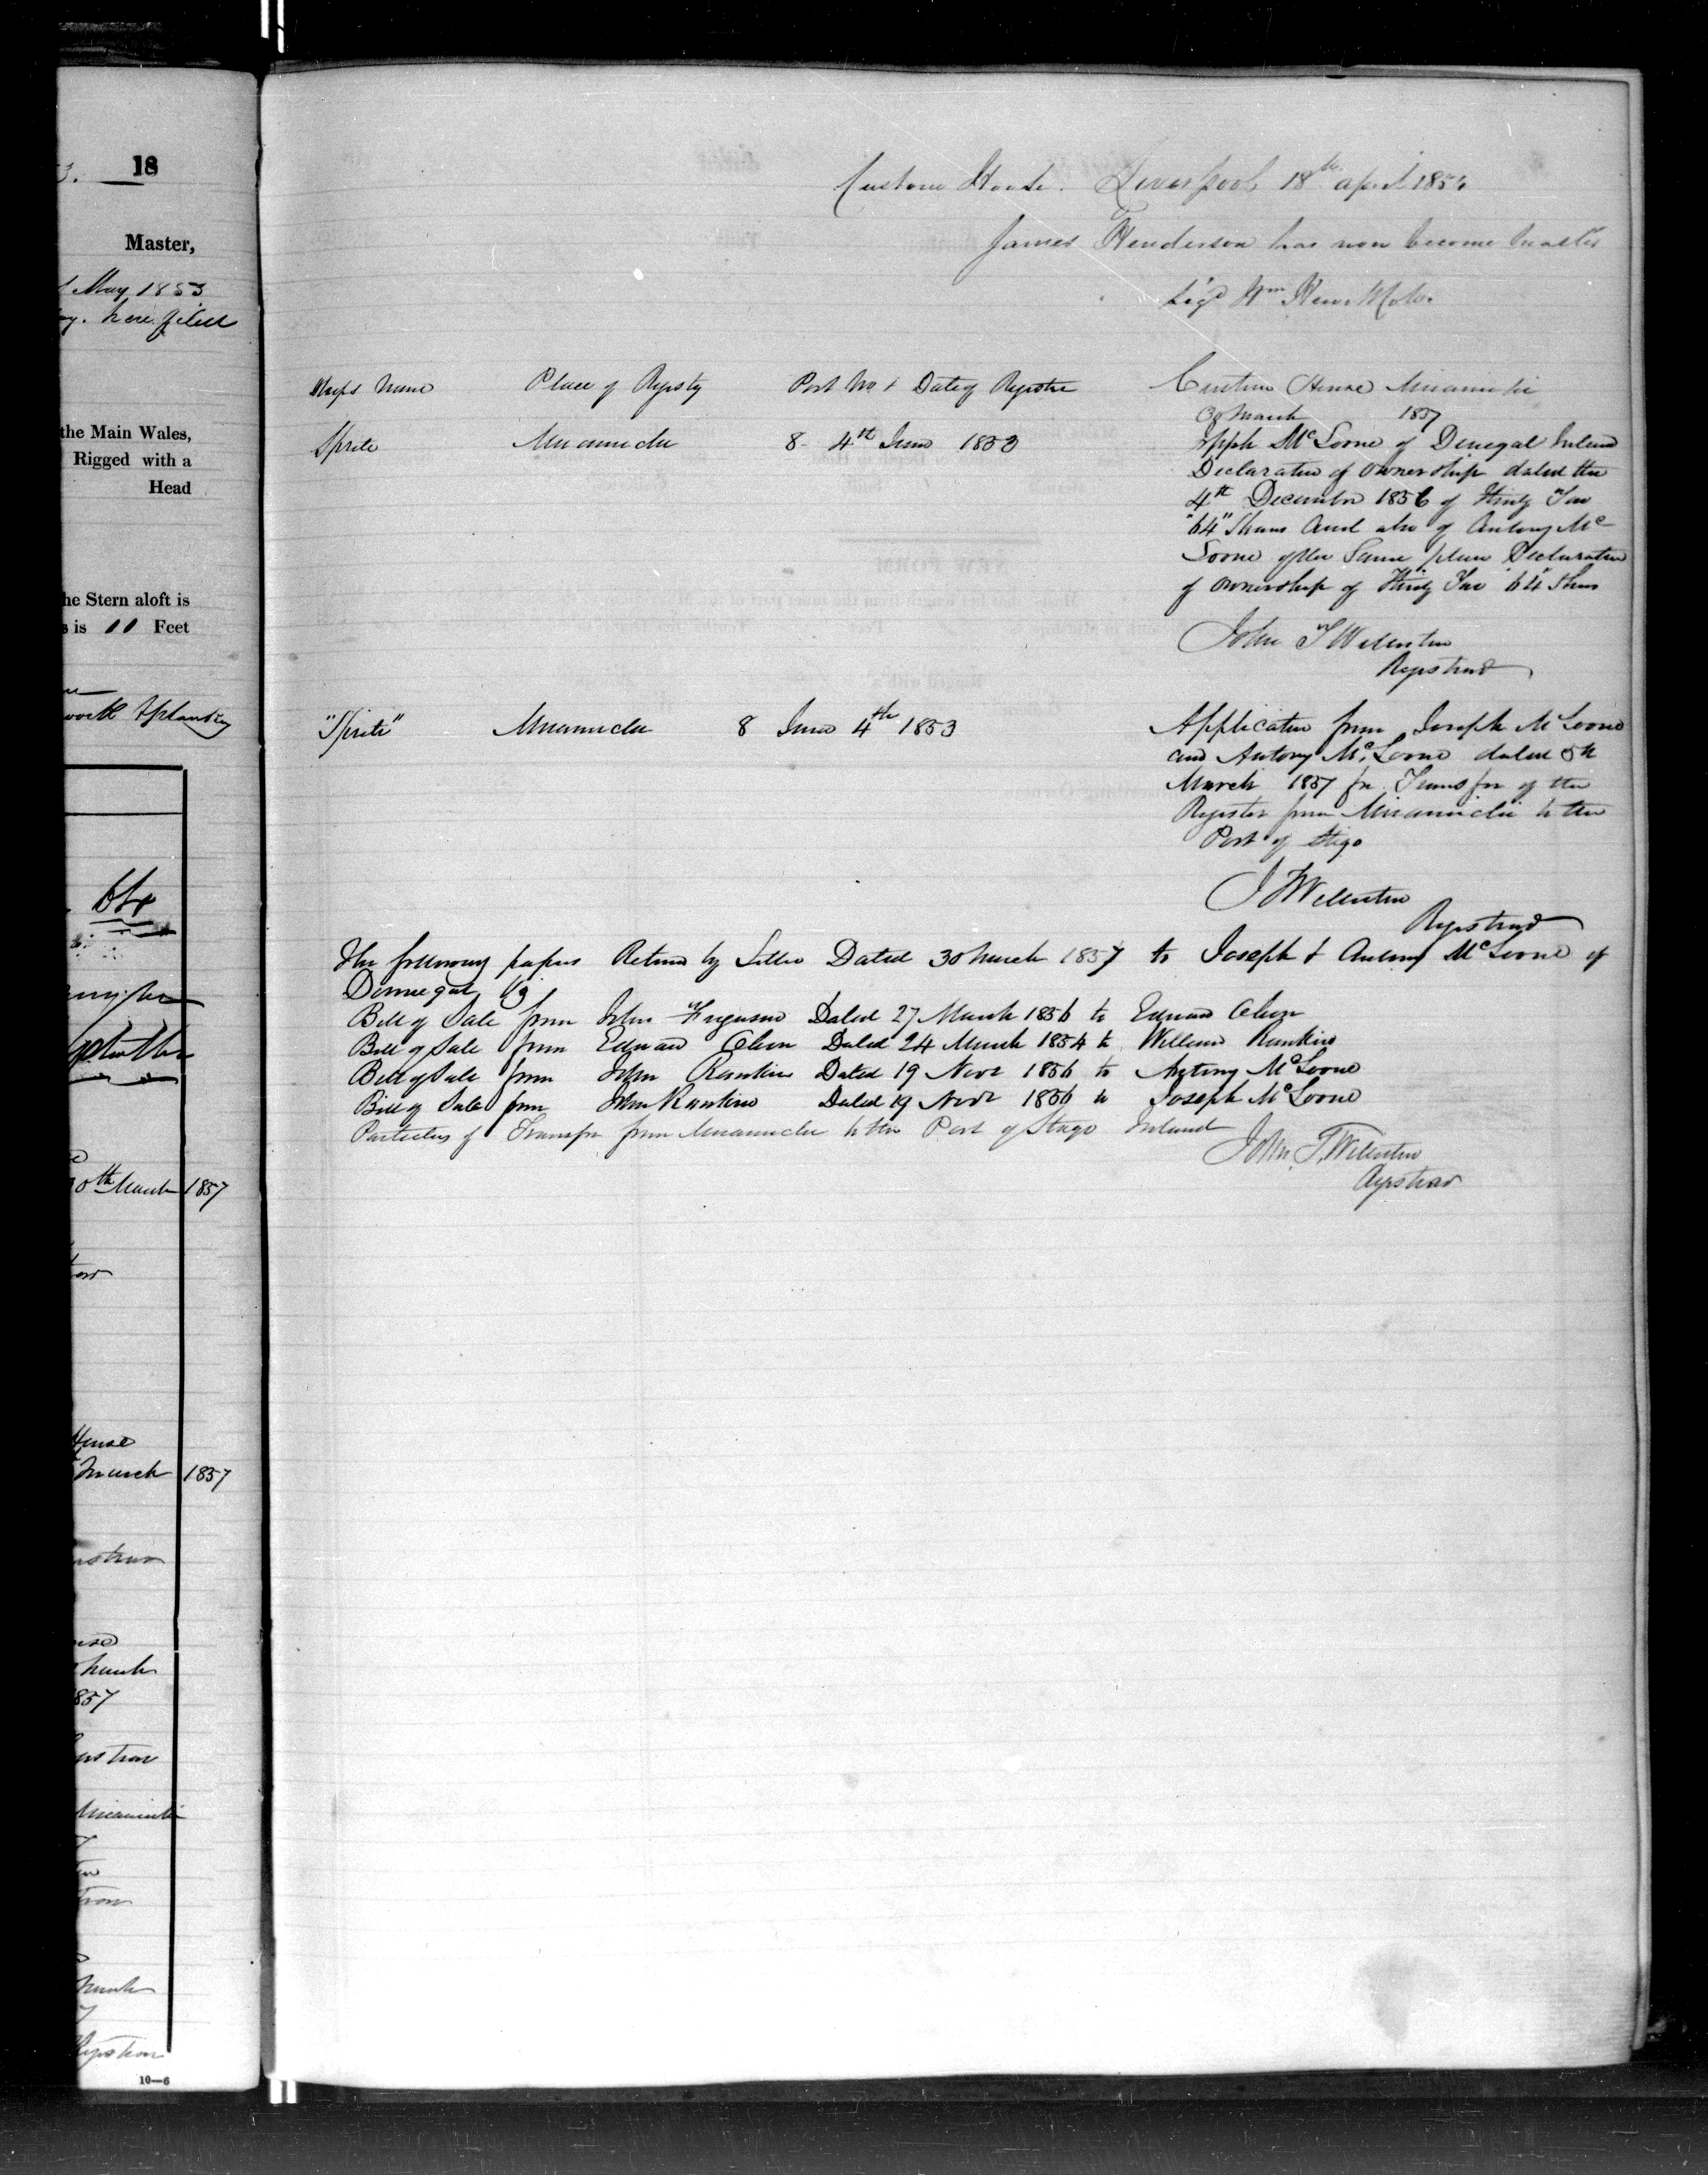 3. 18
Master,
May 1853
here filed
the Main Wales,
Rigged with a
Head
he Stern aloft is
s is 11 Feet
work & planking
64
30th March 1857
House
March 1857
1857
Miramichi
March
Registrar
10—6
Custom House. Liverpool 18th april 185
James Henderson has now become Master
Sigd Wm
Ships Name Place of Registry Port No. & Date of Register Custom House Miramichi
30 March 1857
Sprite Miramichi 8 4th June 1853 Joseph McLoone of Donegal Ireland
Declaration of Ownership dated the
4th December 1856 of Thirty Two
"64" Shares And also of Antony Mc
Loone of the Same place Declaration
of Ownership of Thirty Two "64" Shares
John T Williston
Registrar
"Sprite" Miramichi 8 June 4th 1853 Application from Joseph McLoone
and Antony McLoone dated 5th
March 1857 for Transfer of the
Register from Miramichi to the
Port of Sligo
J T Williston
Registrar
The following papers Returned by Letter Dated 30 March 1857 to Joseph & Antony McLoone of
Donnegal Vig
Bill of Sale from John Ferguson Dated 27 March 1856 to Edward Olson
Bill of Sale from Edward Olson Dated 24 March 1854 to William Rankin
Bill of Sale from John Rankin Dated 19 Novr 1856 to Antony McLoone
Bill of Sale from John Rankin Dated 19 Novr 1856 to Joseph McLoone
Particulars of Transfer from Miramichi to the Port of Sligo Ireland
John T. Williston
Registrar